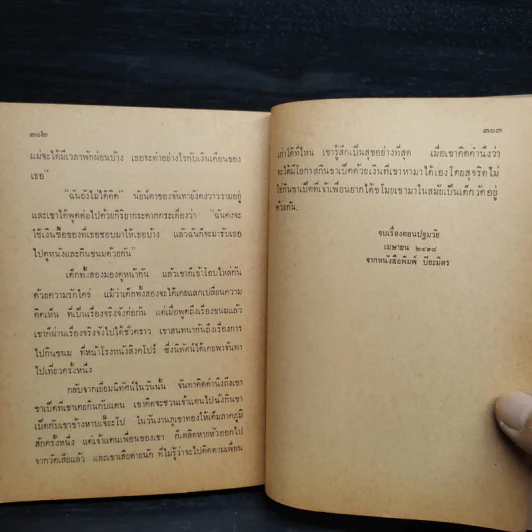 ๓๐๒
แม่จะได้มีเวลาพักผ่อนบ้าง เธอจะทำอย่างไรกับเงินเดือนของ
เธอ”
“ฉันยังไม่ได้คิด” นัยน์ตาของจันทายังคงวาววามอยู่
และเขาได้พูดต่อไปด้วยกิริยากระดากกระเดื่องว่า “ฉันคงจะ
ใช้เงินซื้อของที่เธอชอบมาให้เธอบ้าง แล้วฉันก็จะมารับเธอ
ไปดูหนังและกินขนมด้วยกัน”
เด็กทั้งสองมองดูหน้ากัน แล้วเขาก็เข้าโอบไหล่กัน
ด้วยความรักใคร่ แม้ว่าเด็กทั้งสองจะได้เคยแลกเปลี่ยนความ
คิดเห็น ที่เป็นเรื่องจริงจังต่อกัน แต่เมื่อพูดถึงเรื่องขนมแล้ว
เขาก็ผ่านเรื่องจริงจังไปได้ชั่วคราว เขาสนทนากันถึงเรื่องการ
ไปกินขนม ที่หน้าโรงหนังสิงคโปร์ ซึ่งนิทัศน์ได้เคยพาจันทา
ไปเที่ยวครั้งหนึ่ง
กลับจากเยี่ยมนิทัศน์ในวันนั้น จันทาคิดคำนึงถึงเขา
ขาเป็ดที่เขาเคยกินกับแดน เขาคิดจะชวนเจ้าแดนไปนั่งกินขา
เป็ดกับเขาข้างหาบเจ๊ยะโป ในวันงานภูเขาทองให้เต็มภาคภูมิ
สักครั้งหนึ่ง แต่เจ้าแดนเพื่อนของเขา ก็เตลิดหายหัวออกไป
จากวัดเสียแล้ว และเขาเสียดายนัก ที่ไม่รู้ว่าจะไปติดตามเพื่อน
๓๐๓
เก่าได้ที่ไหน เขารู้สึกเป็นสุขอย่างที่สุด เมื่อเขาคิดคำนึงว่า
จะได้มีโอกาสกินขาเป็ดด้วยเงินที่เขาหามาได้เองโดยสุจริต ไม่
ใช่กินขาเป็ดที่เจ้าเพื่อนยากได้ขโมยเขามาในสมัยเป็นเด็กวัดอยู่
ด้วยกัน.
จบเรื่องตอนปฐมวัย
เมษายน ๒๔๙๘
จากหนังสือพิมพ์ ปิยะมิตร